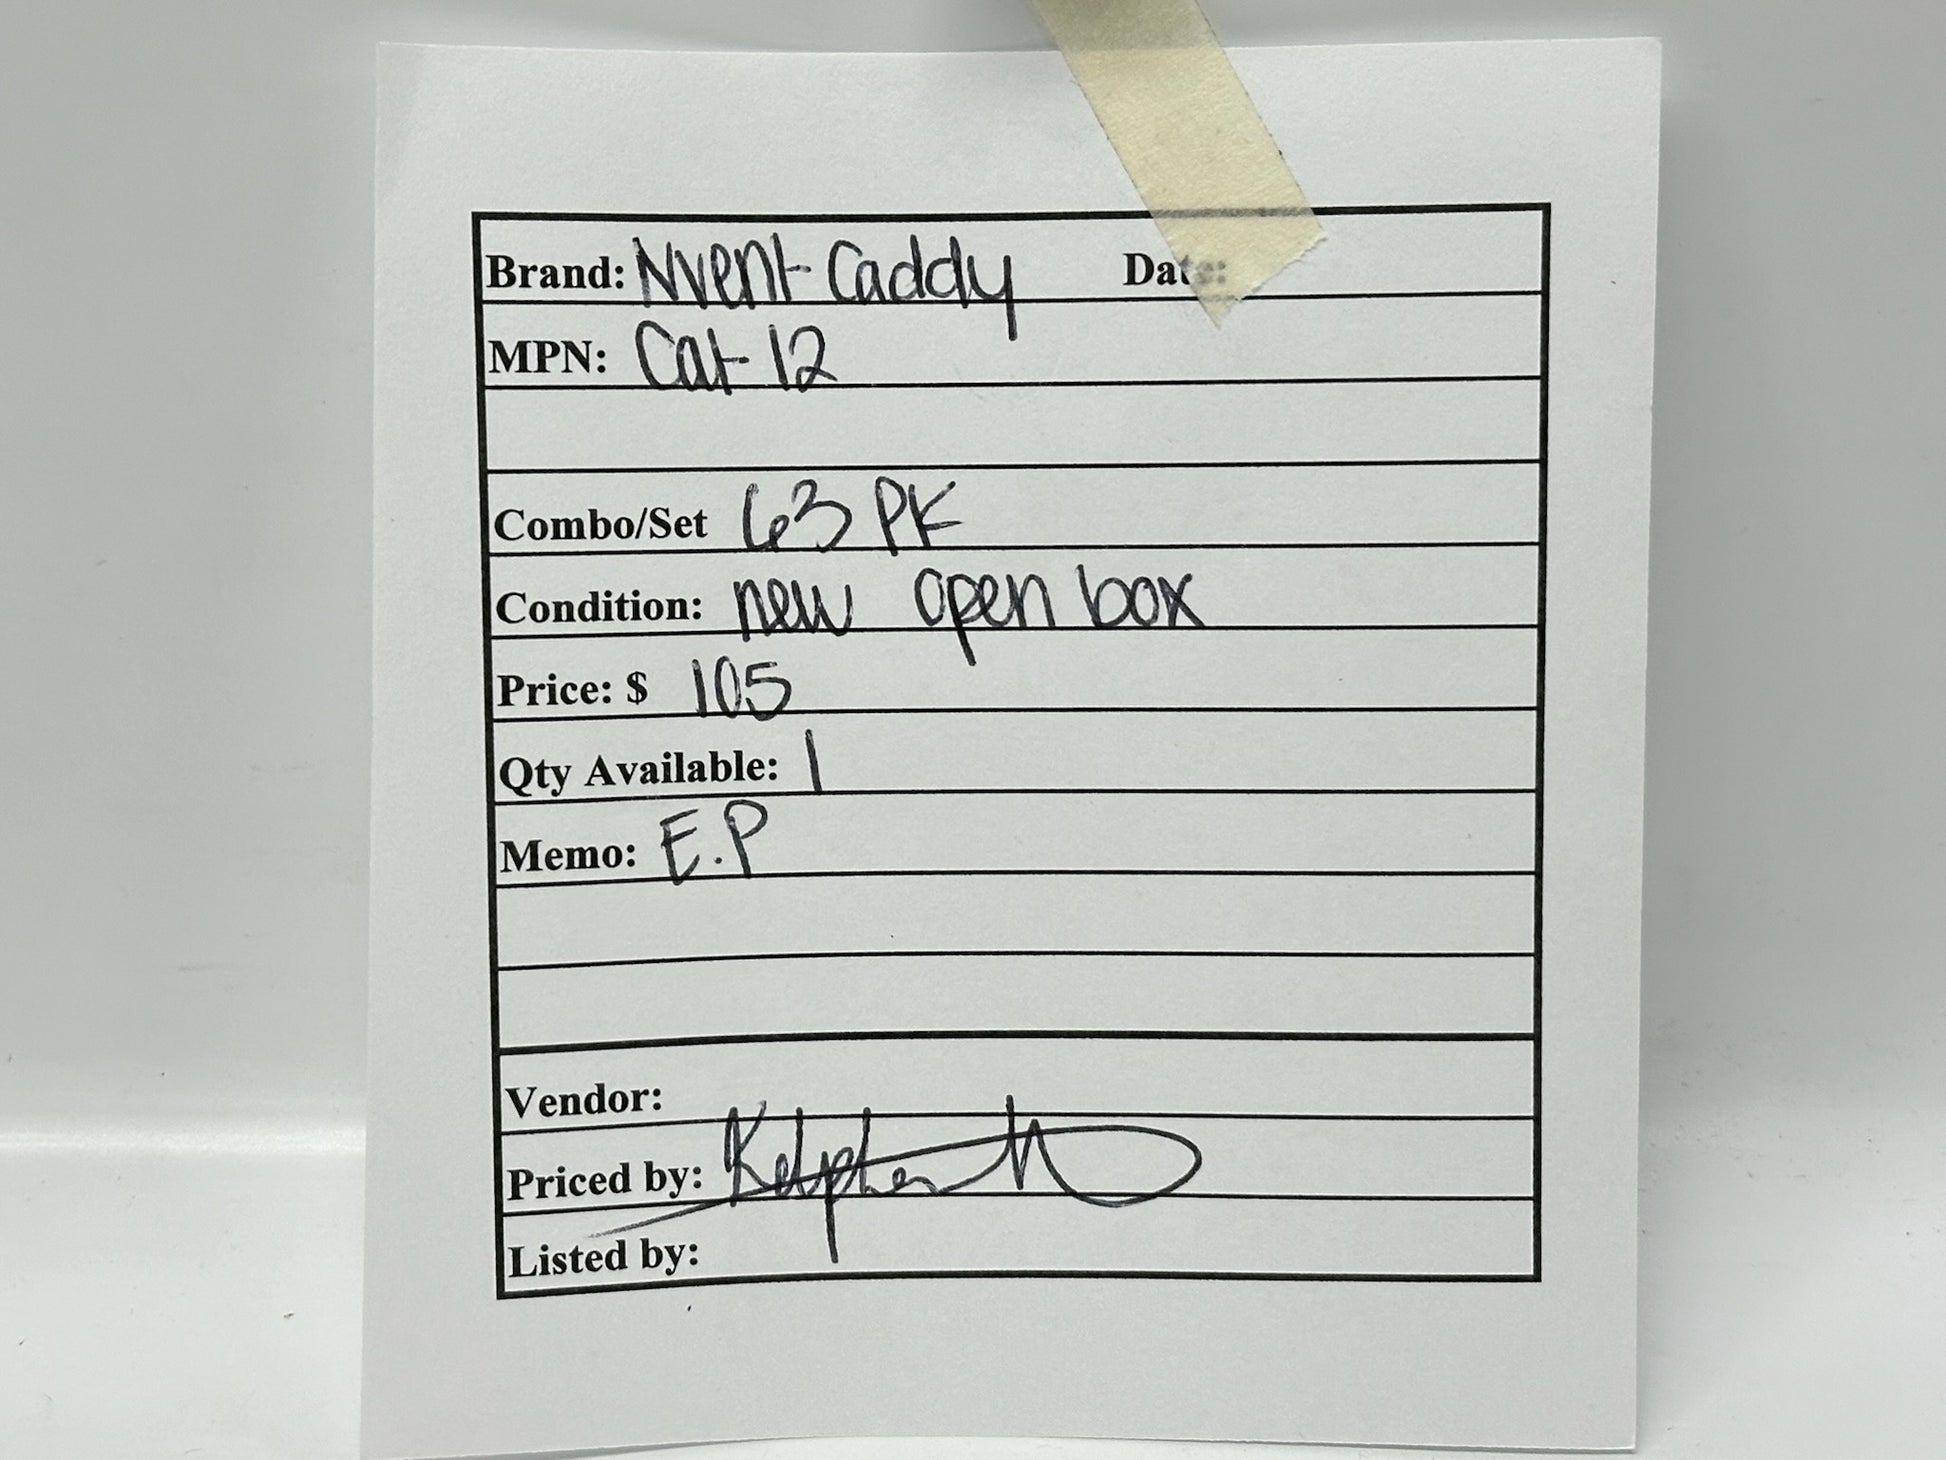 Brand: Nvent Caddy Date:
MPN: Cat 12
Combo/Set 63 PK
Condition: new open box
Price: $ 105
Qty Available: 1
Memo: E.P
Vendor:
Priced by:
Listed by: